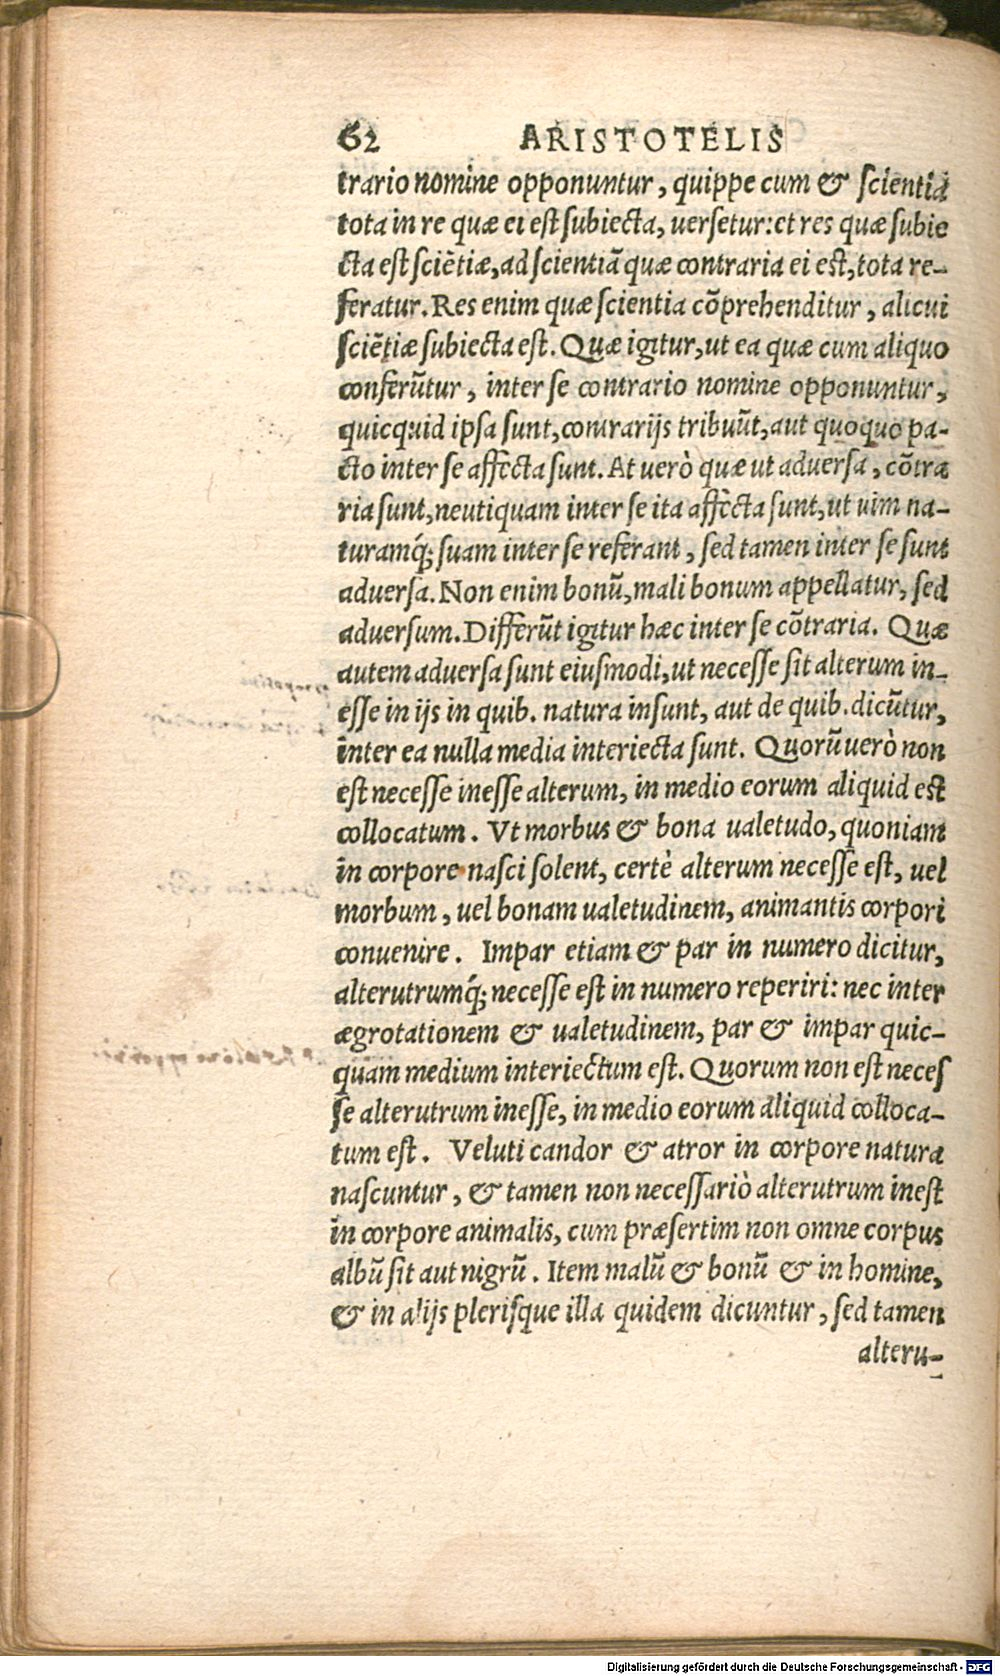 62 ARISTOTELIS
trario nomine opponuntur, quippe cum & scientia
tota in re quæ ei est subiecta, uersetur: et res quæ subie
cta est sciẽtiæ, ad scientiã quæ contraria ei est, tota re-
feratur. Res enim quæ scientia cõprehenditur, alicui
sciẽtiæ subiecta est. Quæ igitur, ut ea quæ cum aliquo
conferũtur, inter se contrario nomine opponuntur,
quicquid ipsa sunt, contrarijs tribuũt, aut quoquo pa-
cto inter se affecta sunt. At uerò quæ ut aduersa, cõtra
ria sunt, neutiquam inter se ita affecta sunt, ut uim na-
turamq́; suam inter se referant, sed tamen inter se sunt
aduersa. Non enim bonũ, mali bonum appellatur, sed
aduersum. Differũt igitur hæc inter se cõtraria. Quæ
autem aduersa sunt eiusmodi, ut necesse sit alterum in-
esse in ijs in quib. natura insunt, aut de quib. dicũtur,
inter ea nulla media interiecta sunt. Quorũ uerò non
est necesse inesse alterum, in medio eorum aliquid est
collocatum. Vt morbus & bona ualetudo, quoniam
in corpore nasci solent, certè alterum necesse est, uel
morbum, uel bonam ualetudinem, animantis corpori
conuenire. Impar etiam & par in numero dicitur,
alterutrumq́; necesse est in numero reperiri: nec inter
ægrotationem & ualetudinem, par & impar quic-
quam medium interiectum est. Quorum non est neces
se alterutrum inesse, in medio eorum aliquid colloca-
tum est. Veluti candor & atror in corpore natura
nascuntur, & tamen non necessariò alterutrum inest
in corpore animalis, cum præsertim non omne corpus
albũ sit aut nigrũ. Item malũ & bonũ & in homine,
& in alijs plerisque illa quidem dicuntur, sed tamen
alteru-
Digitalisierung gefördert durch die Deutsche Forschungsgemeinschaft - DFG